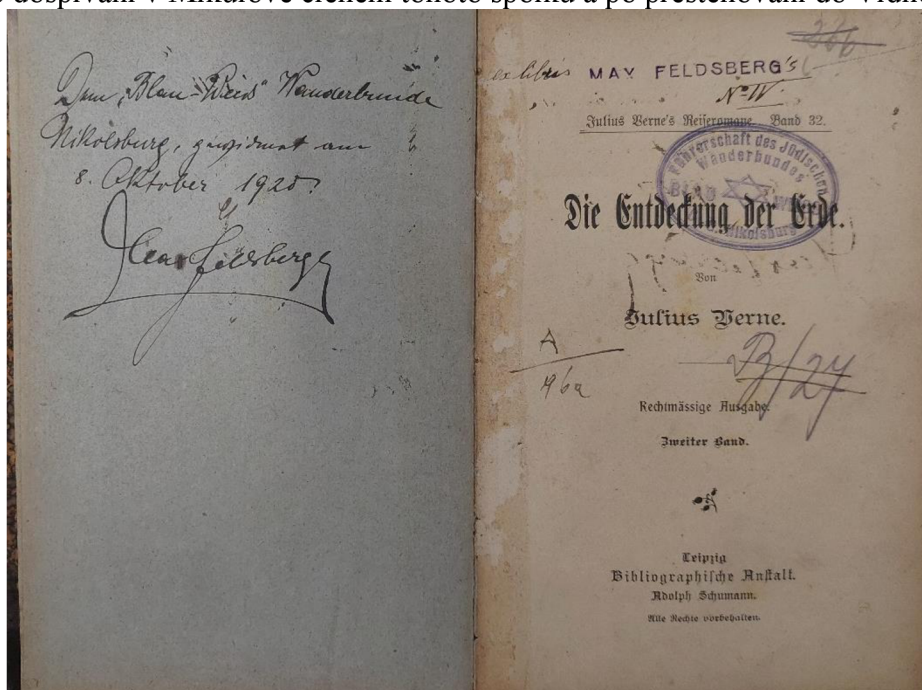 dospívání v Mikulově členem tohoto spolku a po přestěhování do Vídně
Dem "Blau-Weiss" Wanderbunde
Nikolsburg, gewidmet am
8. Oktober 1920.
Feldsberg
ex libris MAX FELDSBERG's
N-IV
Julius Verne's Reiseromane. Band 32.
Führerschaft des Jüdischen
Wanderbundes
BLAU WEISS
Nikolsburg
Die Entdeckung der Erde.
Von
Julius Verne.
A
96a
B/27
Rechtmässige Ausgabe.
Zweiter Band.
Leipzig
Bibliographische Anstalt.
Adolph Schumann.
Alle Rechte vorbehalten.